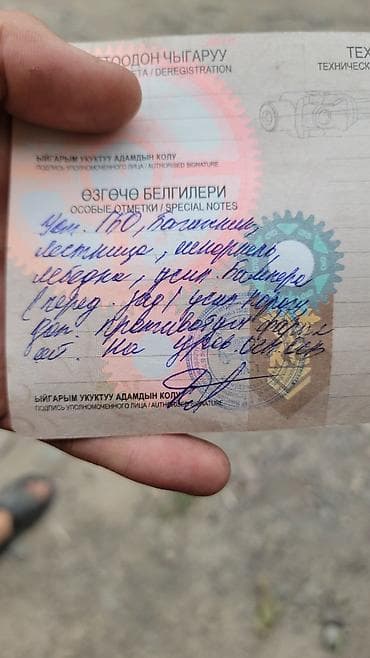 ТООДОН ЧЫГАРУУ
ЕТА / DEREGISTRATION
ТЕХ
ТЕХНИЧЕСК
ЫЙГАРЫМ УКУКТУУ АДАМДЫН КОЛУ
ПОДПИСЬ УПОЛНОМОЧЕННОГО ЛИЦА / AUTHORISED SIGNATURE
ӨЗГӨЧӨ БЕЛГИЛЕРИ
ОСОБЫЕ ОТМЕТКИ / SPECIAL NOTES
Уст. ГБО, багажник,
лестница, шноркель,
лебедка, усил. бампера
(перед. зад) усил
доп. противотум. фары
на
ЫЙГАРЫМ УКУКТУУ АДАМДЫН КОЛУ
ПОДПИСЬ УПОЛНОМОЧЕННОГО ЛИЦА / AUTHORISED SIGNATURE